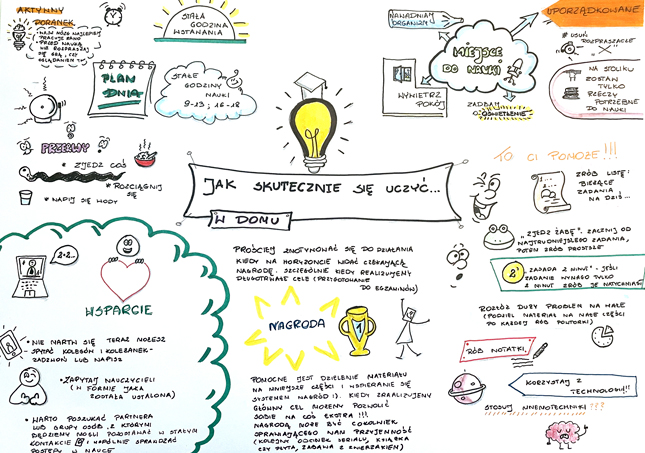 AKTYWNY
PORANEK
MÓZG NAJLEPIEJ
PRACUJE RANO
PRZED NAUKĄ
NIE ROZPRASZAJ
SIĘ GRĄ, CZY
OGLĄDANIEM TV
STAŁA
GODZINA
WSTAWANIA
PLAN
DNIA
STAŁE
GODZINY
NAUKI
9-13; 16-18
PRZERWY
* ZJEDZ COŚ
* ROZCIĄGNIJ
SIĘ
* NAPIJ SIĘ WODY
NAWADNIAJ
ORGANIZM
MIEJSCE
DO NAUKI
WYWIETRZ
POKÓJ
ZADBAJ
O OŚWIETLENIE
UPORZĄDKOWANE
* USUŃ
ROZPRASZACZE
"X"
NA STOLIKU
ZOSTAW
TYLKO
RZECZY
POTRZEBNE
DO NAUKI
JAK SKUTECZNIE SIĘ UCZYĆ...
W DOMU
TO CI POMOŻE!!!
ZRÓB LISTĘ:
BIEŻĄCE
ZADANIA
NA DZIŚ...
"ZJEDZ ŻABĘ". ZACZNIJ OD
NAJTRUDNIEJSZEGO ZADANIA,
POTEM ZRÓB PROSTSZE
2'
"ZASADA 2 MINUT" - JEŚLI
ZADANIE WYMAGA TYLKO
2 MINUT ZRÓB JE NATYCHMIAST
ROZŁÓŻ DUŻY PROBLEM NA MAŁE
(PODZIEL MATERIAŁ NA MAŁE CZĘŚCI
PO KAŻDEJ RÓB POWTÓRKI)
RÓB NOTATKI
KORZYSTAJ Z
TECHNOLOGII!!
STOSUJ MNEMOTECHNIKI???
2+2..
WSPARCIE
NIE MARTW SIĘ TERAZ MOŻESZ
SPYTAĆ KOLEGÓW I KOLEŻANEK-
ZADZWOŃ LUB NAPISZ
ZAPYTAJ NAUCZYCIELI
(W FORMIE JAKA
ZOSTAŁA USTALONA)
* WARTO POSZUKAĆ PARTNERA
LUB GRUPY OSÓB Z KTÓRYMI
BĘDZIEMY MOGLI POZOSTAWAĆ W STAŁYM
KONTAKCIE I WSPÓLNIE SPRAWDZAĆ
POSTĘPY W NAUCE
PROŚCIEJ ZMOTYWOWAĆ SIĘ DO DZIAŁANIA
KIEDY NA HORYZONCIE WIDAĆ CZEKAJĄCĄ
NAGRODĘ. SZCZEGÓLNIE KIEDY REALIZUJEMY
DŁUGOTRWAŁE CELE (PRZYGOTOWANIE
DO EGZAMINÓW)
NAGRODA
1
POMOCNE JEST DZIELENIE MATERIAŁU
NA MNIEJSZE CZĘŚCI I WSPIERANIE SIĘ
SYSTEMEM NAGRÓD :). KIEDY ZREALIZUJEMY
GŁÓWNY CEL MOŻEMY POZWOLIĆ
SOBIE NA COŚ EKSTRA!!!
NAGRODĄ MOŻE BYĆ COKOLWIEK
SPRAWIAJĄCEGO NAM PRZYJEMNOŚĆ
(KOLEJNY ODCINEK SERIALU, KSIĄŻKA
CZY PŁYTA, ZABAWA Z ZWIERZAKIEM)